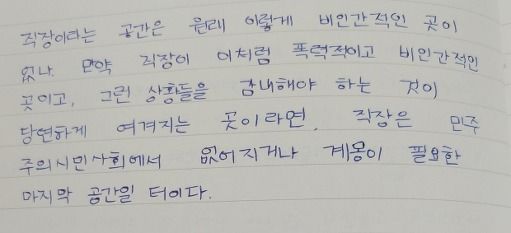 직장이라는 공간은 원래 이렇게 비인간적인 곳이
었나. 만약 직장이 이처럼 폭력적이고 비인간적인
곳이고, 그런 상황들을 감내해야 하는 것이
당연하게 여겨지는 곳이라면, 직장은 민주
주의시민사회에서 없어지거나 계몽이 필요한
마지막 공간일 터이다.